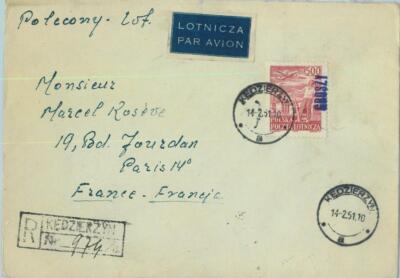 Polecony - Lot.
LOTNICZA
PAR AVION
Monsieur
Marcel Kosève
19, Bd. Jourdan
Paris 14°
France - Francja
500
GROSZY
POLSKA
POCZTA LOTNICZA
KĘDZIERZYN
14-2.51.10
a
KĘDZIERZYN
14-2.51.10
a
R
KĘDZIERZYN
Nr. 974